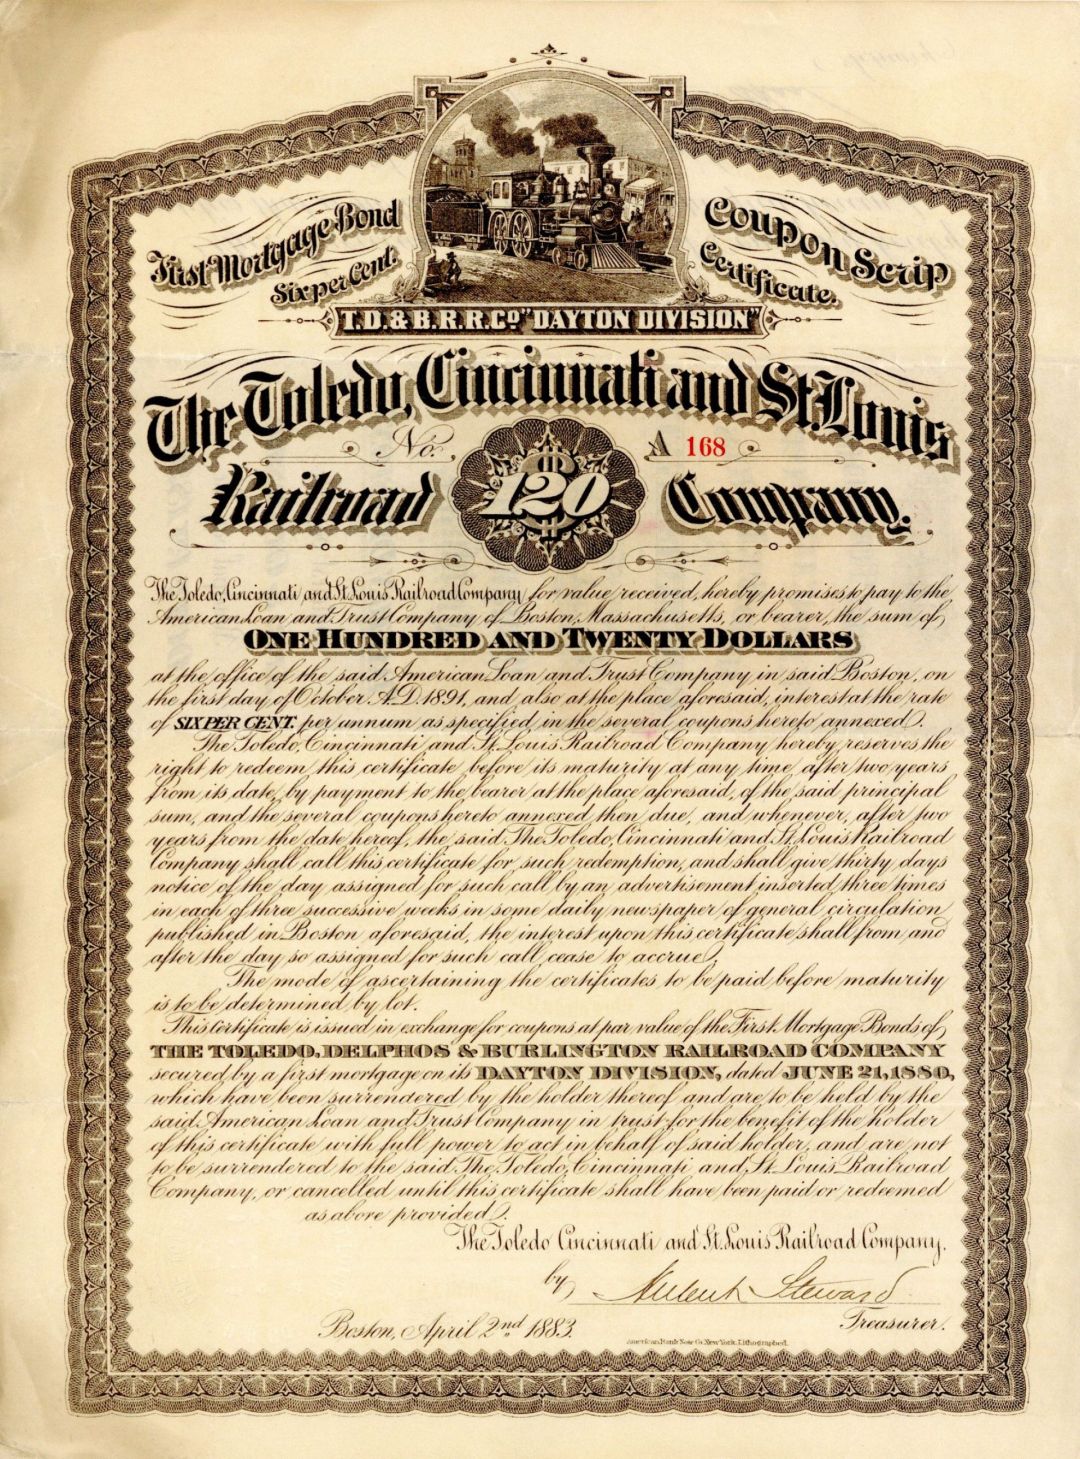 First Mortgage Bond
Six per Cent.
Coupon Scrip
Certificate.
T.D. & B.R.R. Co "DAYTON DIVISION"
The Toledo, Cincinnati and St. Louis
No. A 168
Railroad $120 Company.
The Toledo, Cincinnati and St. Louis Railroad Company for value received, hereby promises to pay to the
American Loan and Trust Company of Boston, Massachusetts, or bearer, the sum of
ONE HUNDRED AND TWENTY DOLLARS
at the office of the said American Loan and Trust Company in said Boston, on
the first day of October A.D. 1891, and also at the place aforesaid, interest at the rate
of SIX PER CENT. per annum as specified in the several coupons hereto annexed.
The Toledo, Cincinnati and St. Louis Railroad Company hereby reserves the
right to redeem this certificate before its maturity at any time after two years
from its date, by payment to the bearer at the place aforesaid, of the said principal
sum, and the several coupons hereto annexed then due, and whenever, after two
years from the date hereof, the said The Toledo, Cincinnati and St. Louis Railroad
Company shall call this certificate for such redemption, and shall give thirty days
notice of the day assigned for such call by an advertisement inserted three times
in each of three successive weeks in some daily newspaper of general circulation
published in Boston aforesaid, the interest upon this certificate shall from and
after the day so assigned for such call cease to accrue.
The mode of ascertaining the certificates to be paid before maturity
is to be determined by lot.
This Certificate is issued in exchange for coupons at par value of the First Mortgage Bonds of
THE TOLEDO, DELPHOS & BURLINGTON RAILROAD COMPANY
secured by a first mortgage on its DAYTON DIVISION, dated JUNE 21, 1880,
which have been surrendered by the holder thereof and are to be held by the
said American Loan and Trust Company in trust for the benefit of the holder
of this certificate with full power to act in behalf of said holder, and are not
to be surrendered to the said The Toledo, Cincinnati and St. Louis Railroad
Company, or cancelled until this certificate shall have been paid or redeemed
as above provided.
The Toledo Cincinnati and St. Louis Railroad Company.
by Steward
Treasurer.
Boston, April 2nd 1883.
American Bank Note Co. New York. Lithographed.